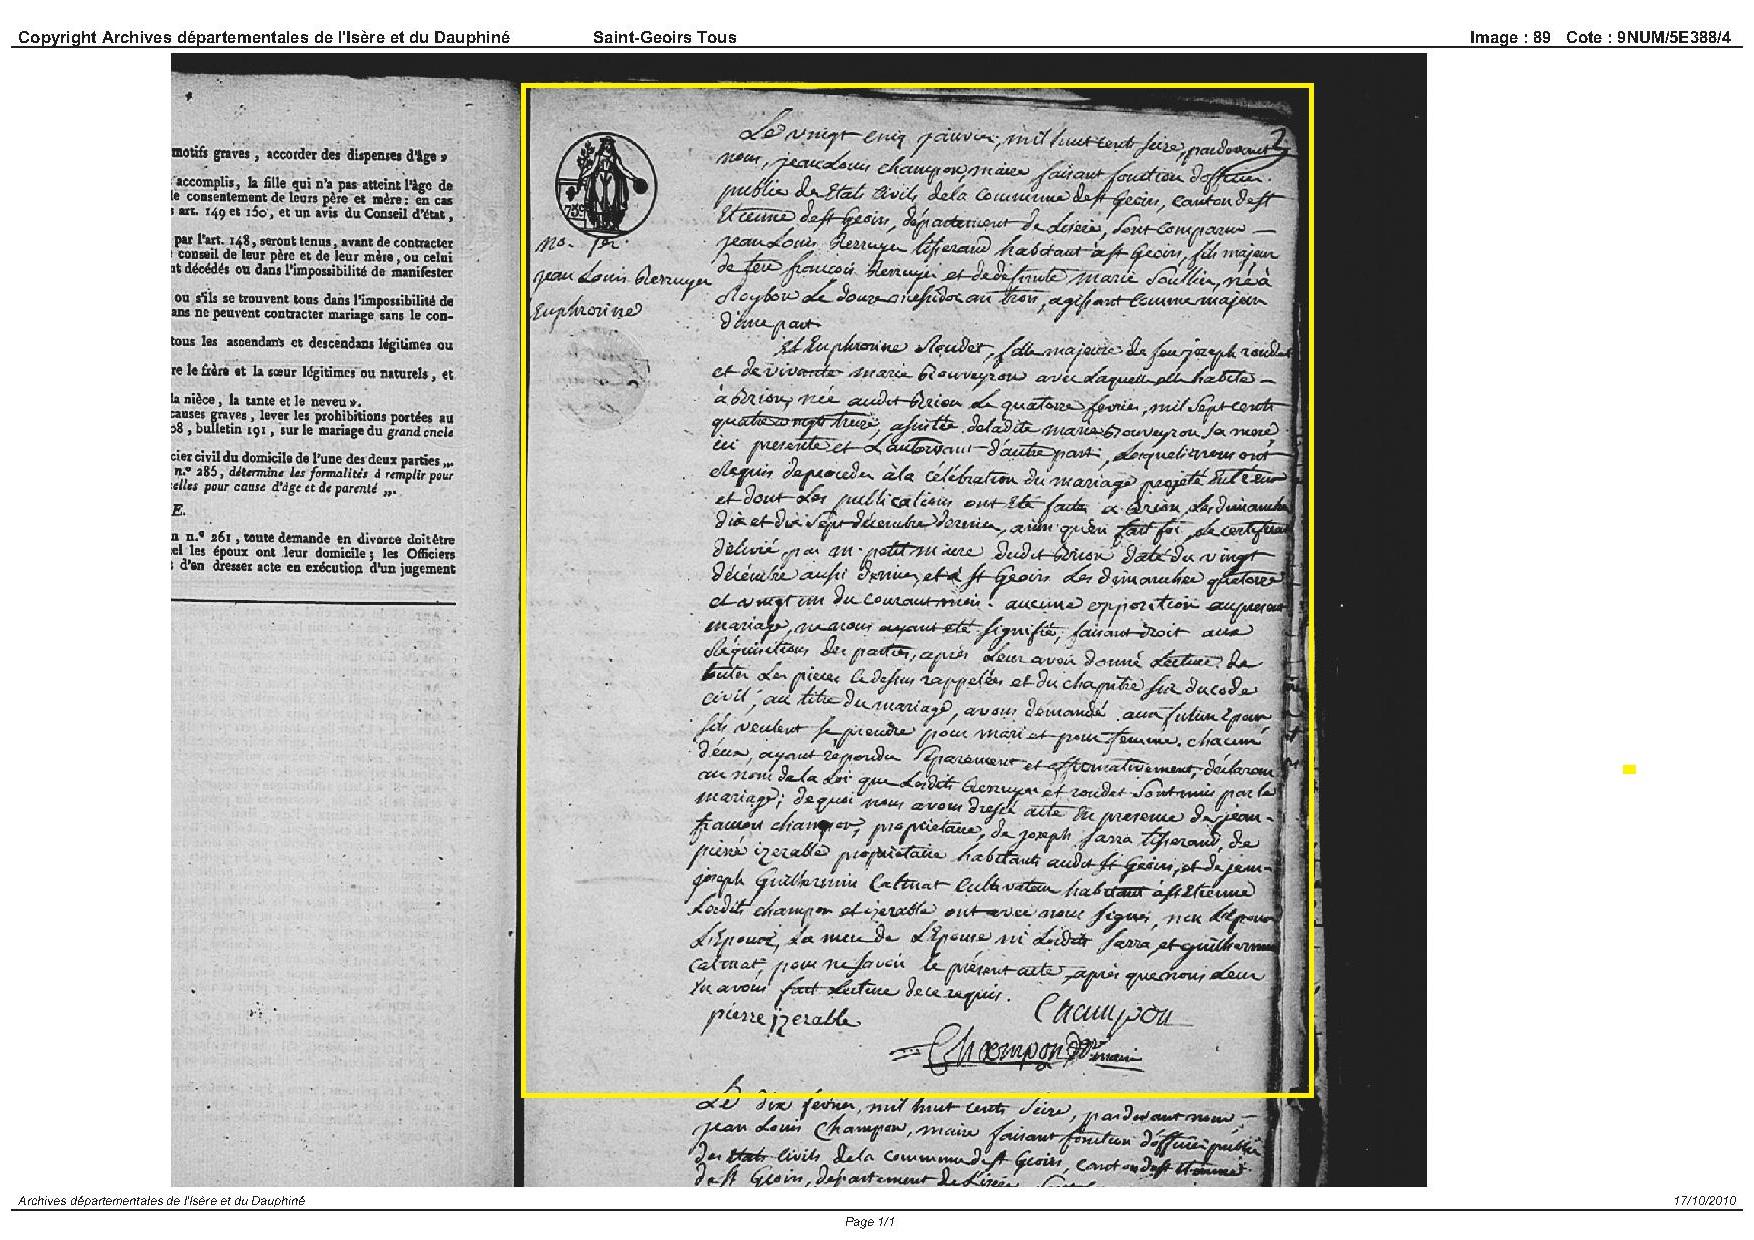 Copyright Archives départementales de l'Isère et du Dauphiné Saint-Geoirs Tous Image : 89 Cote : 9NUM/5E388/4
motifs graves , accorder des dispenses d'âge »
accomplis, la fille qui n'a pas atteint l'âge de
le consentement de leurs père et mère : en cas
art. 149 et 150, et un avis du Conseil d'état ,
par l'art. 148, seront tenus, avant de contracter
conseil de leur père et de leur mère, ou celui
nt décédés ou dans l'impossibilité de manifester
ou s'ils se trouvent tous dans l'impossibilité de
ans ne peuvent contracter mariage sans le con-
tous les ascendans et descendans légitimes ou
re le frère et la sœur légitimes ou naturels , et
la nièce, la tante et le neveu ».
causes graves, lever les prohibitions portées au
08, bulletin 191, sur le mariage du grand oncle
cier civil du domicile de l'une des deux parties „.
n.° 285, détermine les formalités à remplir pour
elles pour cause d'âge et de parenté „.
E.
n n.° 261, toute demande en divorce doit être
el les époux ont leur domicile ; les Officiers
d'en dresser acte en exécution d'un jugement
75c
no. 1er.
jean Louis
Euphrosine
2
Le vingt cinq janvier, mil huit cents seize, pardevant
nous, jean Louis champon, maire faisant fonction d'officier
public des Etats Civils de la commune de st Geoirs, canton de st
Etienne de st Geoirs, département de Lisère, sont comparus
jean Louis tisserand habitant à st Geoirs, fils majeur
de feu françois et de défunte marie né à
Roybon Le douze messidor an trois, agissant comme majeur
d'une part
Et Euphrosine Roudet, fille majeure de feu joseph roudet
et de vivante marie Bouveyron avec laquelle elle habite
à Brion, née audit Brion Le quatorze fevrier, mil sept cents
quatre vingt treize, assistée de ladite marie Bouveyron sa mere
ici presente et L'autorisant d'autre part, Lesquels nous ont
Requis de proceder à la célébration du mariage projeté entr'eux
et dont Les publications ont été faites a Brion Les dimanches
dix et dix sept décembre dernier, ainsi qu'en fait foi Le certificat
délivré par m. petit maire dudit Brion daté du vingt
décembre aussi dernier, et à st Geoirs Les dimanches quatorze
et vingt un du courant mois. aucune opposition au present
mariage, ne nous ayant été signifié, faisant droit aux
Réquisitions des parties, après Leur avoir donné Lecture de
toutes Les pieces ci dessus rappelées et du chapitre six du code
civil, au titre du mariage, avons demandé aux futurs Epoux
s'ils veulent se prendre pour mari et pour femme. chacun
d'eux, ayant répondu séparement et affirmativement, déclarons
au nom de la Loi que Lesdits et roudet sont unis par le
mariage; de quoi nous avons dressé acte en presence de jean-
françois champon, propriétaire, de joseph Sarra tisserand, de
pierre izerable propriétaire habitants audit st Geoirs, et de jean-
joseph Guillermin Calmat Cultivateur habitant à st Etienne
Lesdits champon et izerable ont avec nous signés, non L'époux
L'Epouse, La mere de L'Epouse ni Lesdits Sarra, et guillermin
calmat, pour ne savoir le présent acte, après que nous Leur
en avons fait Lecture de ce requis.
pierre izerable
Champon
Champon maire
Le dix février, mil huit cents seize, pardevant nous
jean Louis Champon, maire faisant fonction d'officier public
des Etats Civils de la commune de st Geoirs, canton de st Etienne
de st Geoirs, département de Lisère
Archives départementales de l'Isère et du Dauphiné 17/10/2010
Page 1/1